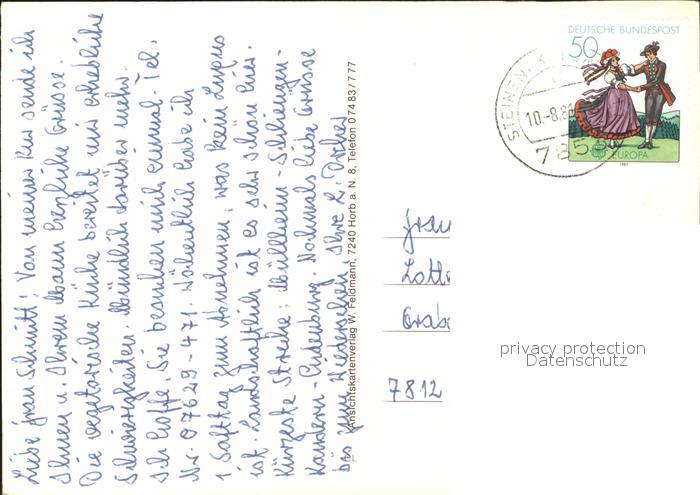 Liebe Frau Schmitt! Von meiner Kur sende ich
Ihnen u. Ihrem Mann herzliche Grüsse.
Die vegetarische Küche bereitet mir erhebliche
Schwierigkeiten. Mündlich darüber mehr.
Ich hoffe, Sie besuchen mich einmal. Tel.
Nr. 07629-471. Wöchentlich habe ich
1 Safttag zum Abnehmen, was kein Luxus
ist. Landschaftlich ist es sehr schön hier.
Kürzeste Strecke: Müllheim-Schliengen-
Kandern-Endenburg. Nochmals liebe Grüsse
bis zum Wiedersehen, Ihre L.
Ansichtskartenverlag W. Feldmann, 7240 Horb a. N. 8, Telefon 0 74 83 / 7 77
DEUTSCHE BUNDESPOST
50
EUROPA
1981
STEINEN, K
10.-8.8
7853
Frau
Lotte
7812
privacy protection
Datenschutz